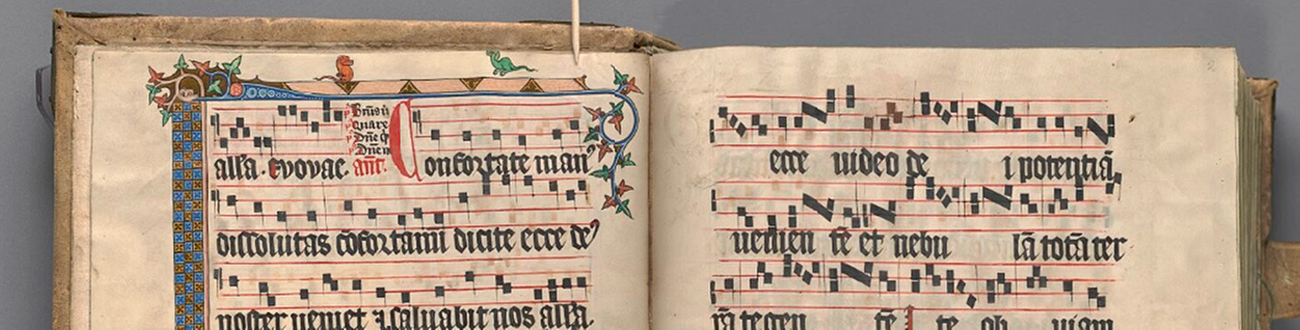 alla. evovae. ant. Confortate man⁹
dissolutas cōfortami dicite ecce de⁹
noster veniet ⁊ salvabit nos alla.
ecce video de i potentiā
venien tē et nebu lā totā ter
rā tegen tē I te ob viam